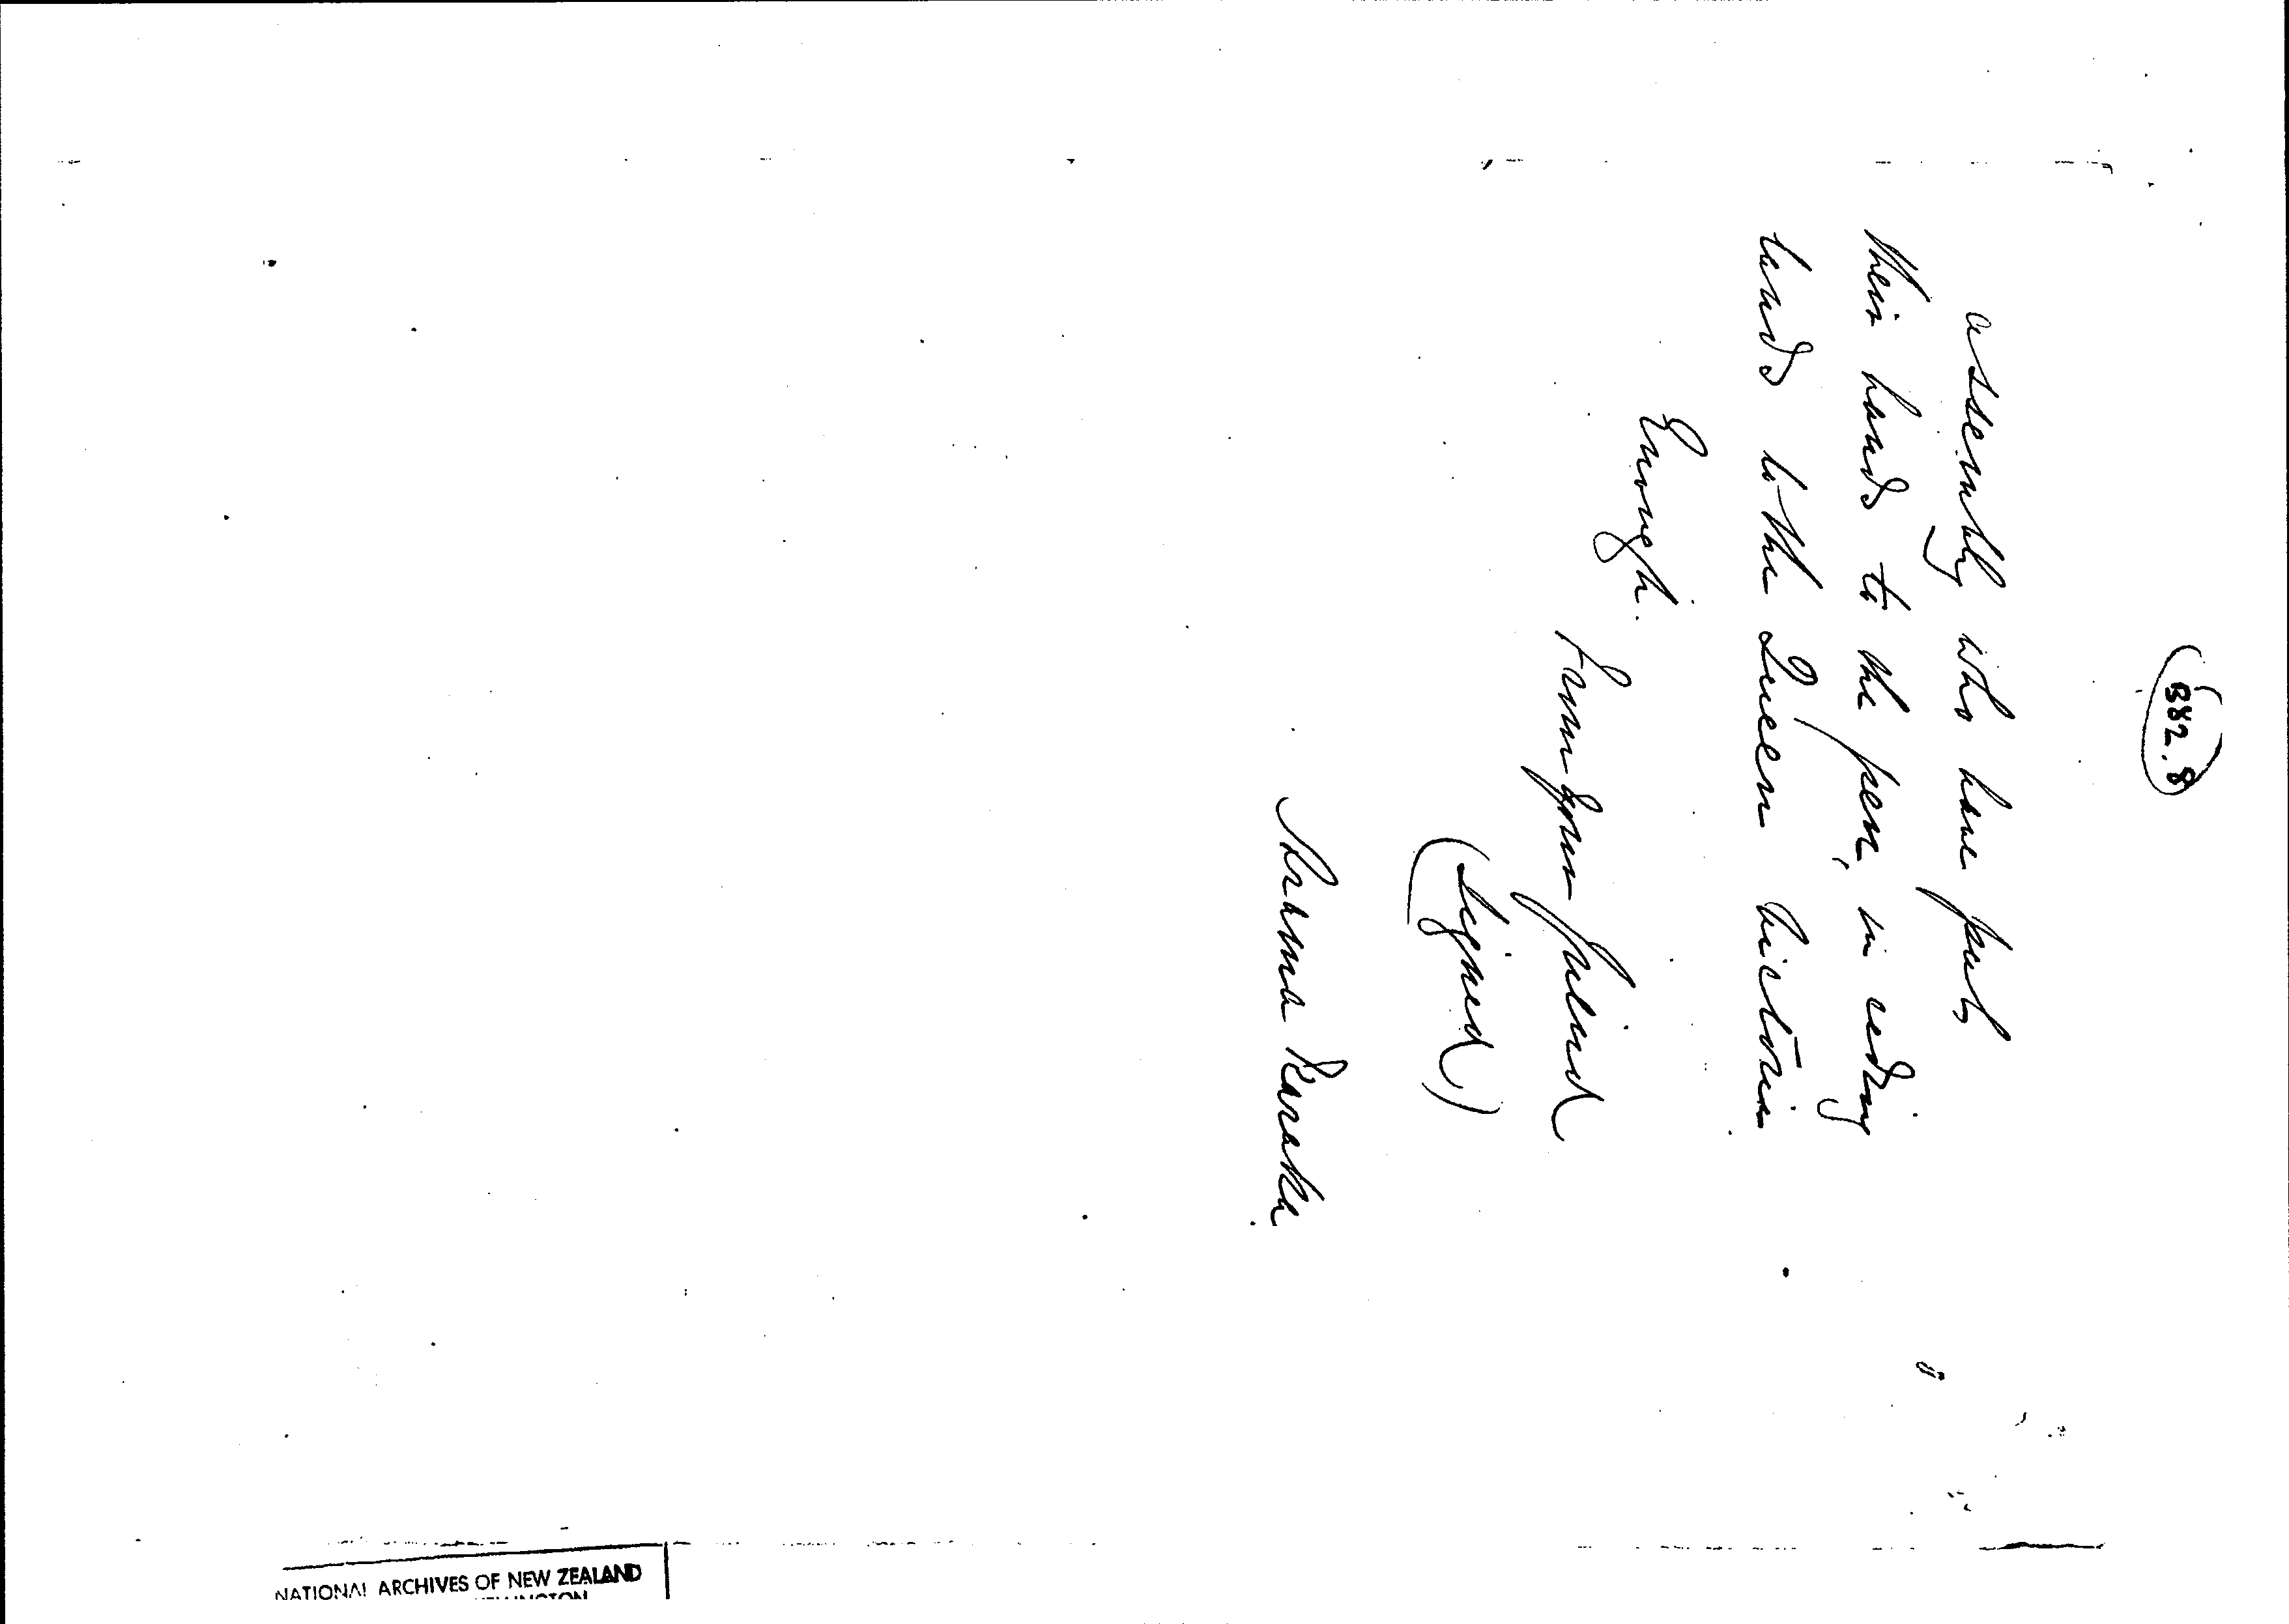 B82.8
assembly who have put
their hands to the pen, in ceding
lands to the Queen Victoria
Enough.
From your friend
(Signed)
Karaka
NATIONAL ARCHIVES OF NEW ZEALAND